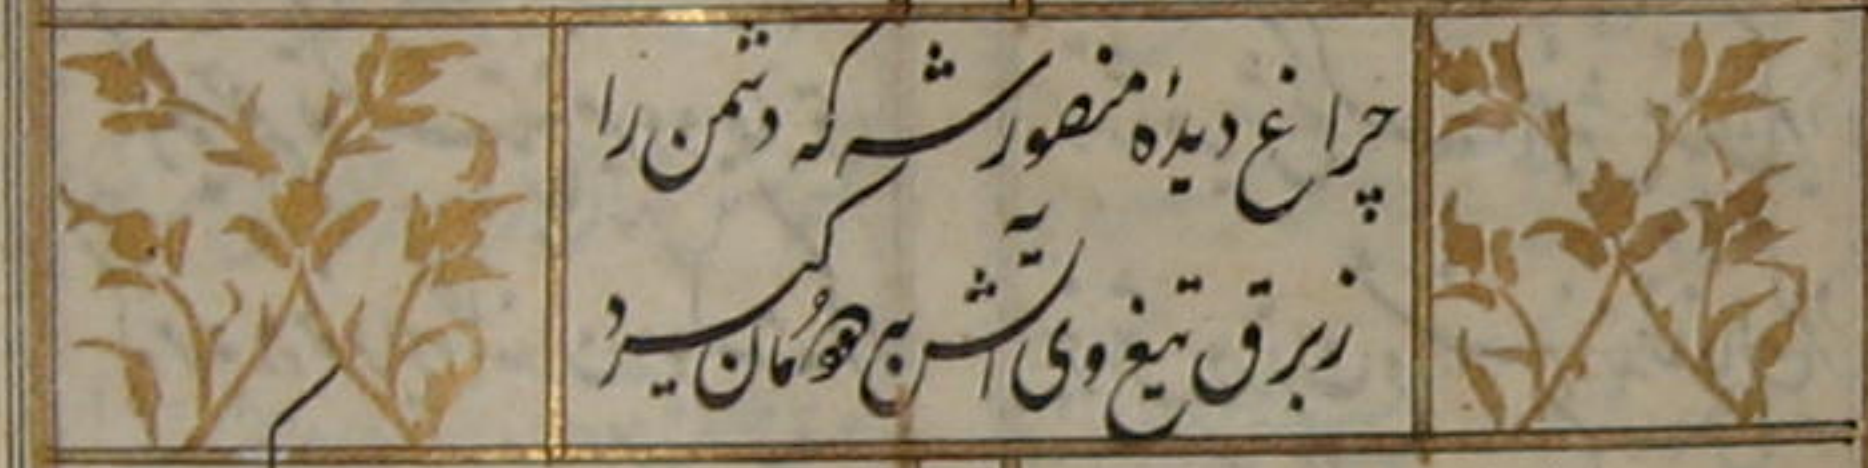 چراغ دیدهٔ منصور شه که دشمن را
ز برق تیغ وی آتش به دودمان گیرد